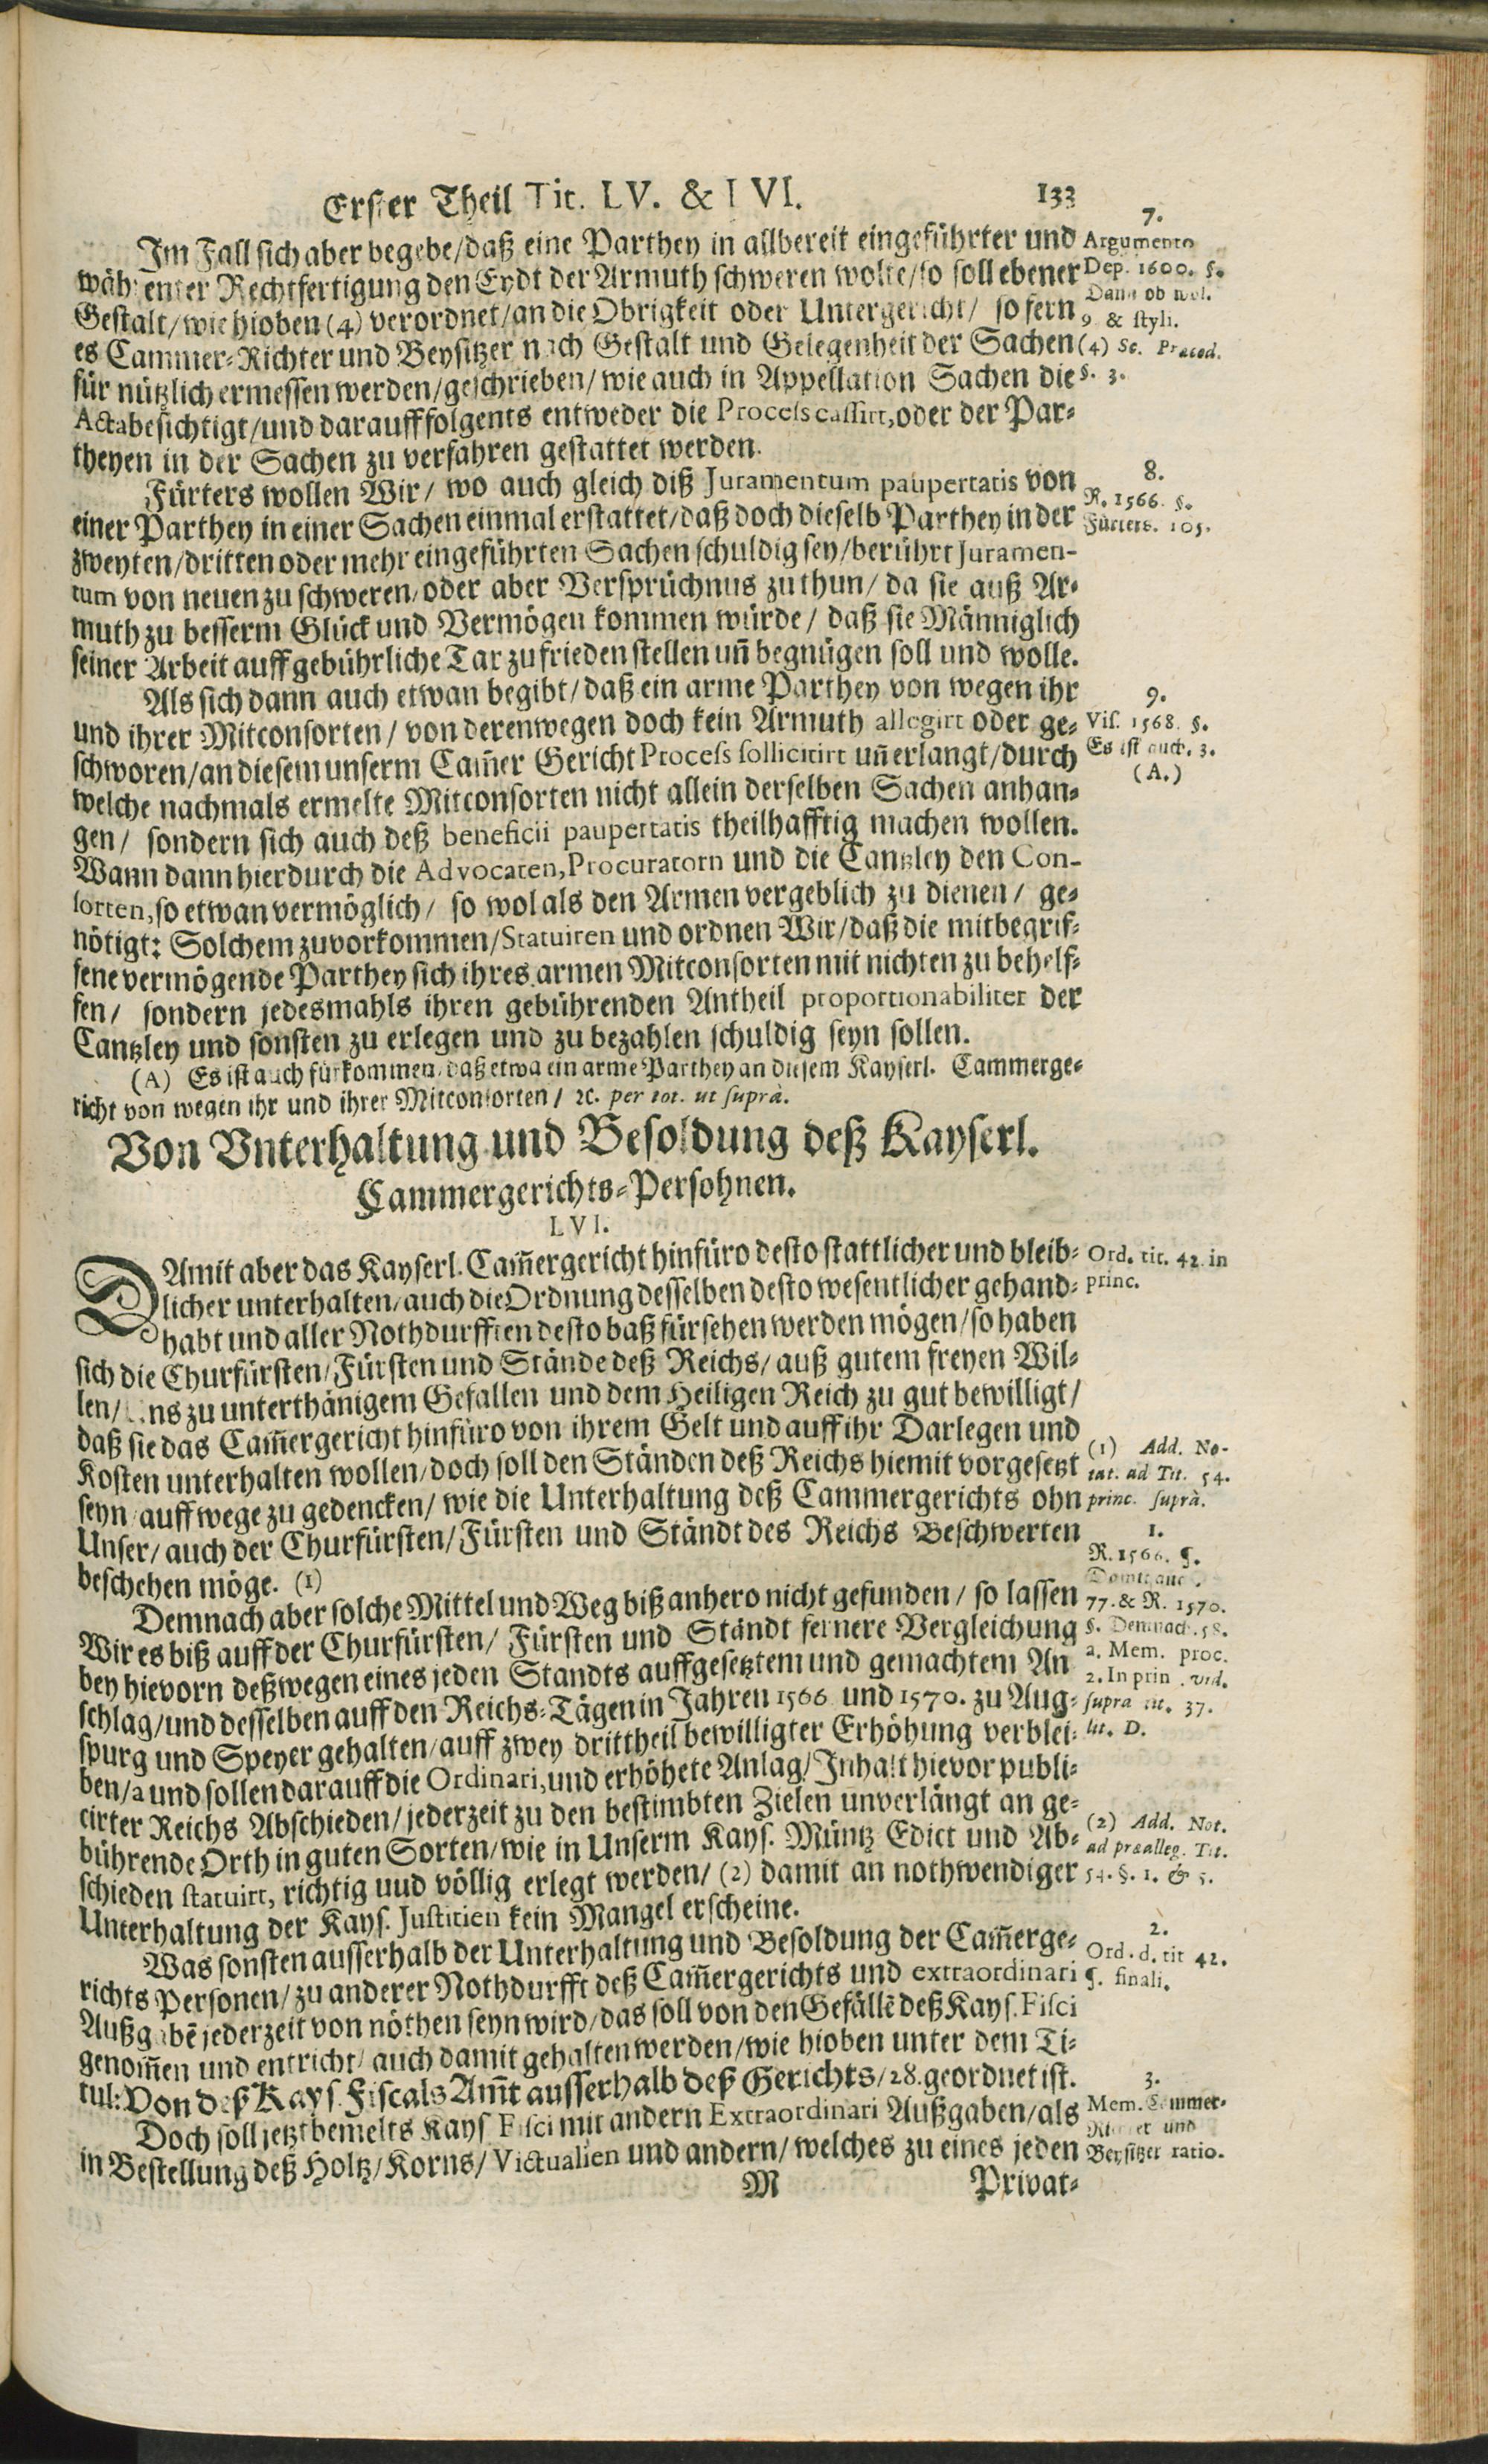 Erster Theil Tit. LV. & LVI. 133
Im Fall sich aber begebe/daß eine Parthey in allbereit eingeführter und
währenter Rechtfertigung den Eydt der Armuth schweren wolte/so soll ebener
Gestalt/wie hioben (4) verordnet/an die Obrigkeit oder Untergericht/ so fern
es Cammer-Richter und Beysitzer nach Gestalt und Gelegenheit der Sachen
für nützlich ermessen werden/geschrieben/wie auch in Appellation Sachen die
Acta besichtigt/und darauff folgents entweder die Process cassirt, oder der Par-
theyen in der Sachen zu verfahren gestattet werden.
7.
Argumento
Dep. 1600. §.
Dann ob wol.
9 & styli.
(4) Sc. Præced.
§. 3.
Fürters wollen Wir/ wo auch gleich diß Juramentum paupertatis von
einer Parthey in einer Sachen einmal erstattet/daß doch dieselb Parthey in der
zweyten/dritten oder mehr eingeführten Sachen schuldig sey/berührt Juramen-
tum von neuen zu schweren/oder aber Versprüchnus zu thun/ da sie auß Ar-
muth zu besserm Glück und Vermögen kommen würde/ daß sie Männiglich
seiner Arbeit auff gebührliche Tax zu frieden stellen uñ begnügen soll und wolle.
8.
R. 1566. §.
Fürters. 105.
Als sich dann auch etwan begibt/daß ein arme Parthey von wegen ihr
und ihrer Mitconsorten/ von derenwegen doch kein Armuth allegirt oder ge-
schworen/an diesem unserm Cam̃er Gericht Process sollicitirt uñ erlangt/durch
welche nachmals ermelte Mitconsorten nicht allein derselben Sachen anhan-
gen/ sondern sich auch deß beneficii paupertatis theilhafftig machen wollen.
Wann dann hierdurch die Advocaten, Procuratorn und die Cantzley den Con-
sorten, so etwan vermöglich/ so wol als den Armen vergeblich zu dienen/ ge-
nötigt: Solchem zuvorkommen/Statuiren und ordnen Wir/daß die mitbegrif-
fene vermögende Parthey sich ihres armen Mitconsorten mit nichten zu behelf-
fen/ sondern jedesmahls ihren gebührenden Antheil proportionabiliter der
Cantzley und sonsten zu erlegen und zu bezahlen schuldig seyn sollen.
9.
Vis. 1568. §.
Es ist auch. 3.
(A.)
(A) Es ist auch fürkommen/daß etwa ein arme Parthey an diesem Kayserl. Cammerge-
richt von wegen ihr und ihrer Mitconsorten/ ꝛc. per tot. ut suprà.
Von Vnterhaltung und Besoldung deß Kayserl.
Cammergerichts-Persohnen.
LVI.
DAmit aber das Kayserl. Cam̃ergericht hinfüro desto stattlicher und bleib-
licher unterhalten/auch die Ordnung desselben desto wesentlicher gehand-
habt und aller Nothdurfften desto baß fürsehen werden mögen/so haben
sich die Churfürsten/Fürsten und Stände deß Reichs/ auß gutem freyen Wil-
len/ Uns zu unterthänigem Gefallen und dem Heiligen Reich zu gut bewilligt/
daß sie das Cam̃ergericht hinfüro von ihrem Gelt und auff ihr Darlegen und
Kosten unterhalten wollen/doch soll den Ständen deß Reichs hiemit vorgesetzt
seyn/auff wege zu gedencken/ wie die Unterhaltung deß Cammergerichts ohn
Unser/auch der Churfürsten/Fürsten und Ständt des Reichs Beschwerten
beschehen möge. (1)
Ord. tit. 42. in
princ.
(1) Add. No-
tat. ad Tit. 54.
princ. suprà.
Demnach aber solche Mittel und Weg biß anhero nicht gefunden/ so lassen
Wir es biß auff der Churfürsten/ Fürsten und Ständt fernere Vergleichung
bey hievorn deßwegen eines jeden Standts auffgesetztem und gemachtem An
schlag/und desselben auff den Reichs-Tägen in Jahren 1566 und 1570. zu Aug-
spurg und Speyer gehalten/auff zwey drittheil bewilligter Erhöhung verblei-
ben/a und sollen darauff die Ordinari, und erhöhete Anlag/Inhalt hievor publi-
cirter Reichs Abschieden/jederzeit zu den bestimbten Zielen unverlängt an ge-
bührende Orth in guten Sorten/wie in Unserm Kays. Müntz Edict und Ab-
schieden statuirt, richtig uud völlig erlegt werden/ (2) damit an nothwendiger
Unterhaltung der Kays. Justitien kein Mangel erscheine.
1.
R. 1566. §.
77. & R. 1570.
§. Demnach. 58.
a. Mem. proc.
2. In prin. vid.
supra tit. 37.
lit. D.
(2) Add. Not.
ad præalleg. Tit.
54. §. 1. & 5.
Was sonsten ausserhalb der Unterhaltung und Besoldung der Cam̃erge-
richts Personen/zu anderer Nothdurfft deß Cam̃ergerichts und extraordinari
Außgabẽ jederzeit von nöthen seyn wird/das soll von den Gefällẽ deß Kays. Fisci
genom̃en und entricht/auch damit gehalten werden/wie hioben unter dem Ti-
tul: Von deß Kays. Fiscals Am̃t ausserhalb deß Gerichts/28. geordnet ist.
2.
Ord. d. tit 42.
§. finali.
Doch soll jetztbemelts Kays Fisci mit andern Extraordinari Außgaben/als
in Bestellung deß Holtz/Korns/Victualien und andern/welches zu eines jeden
3.
Mem. Cammer-
Richter und
Beysitzer ratio.
M Privat-